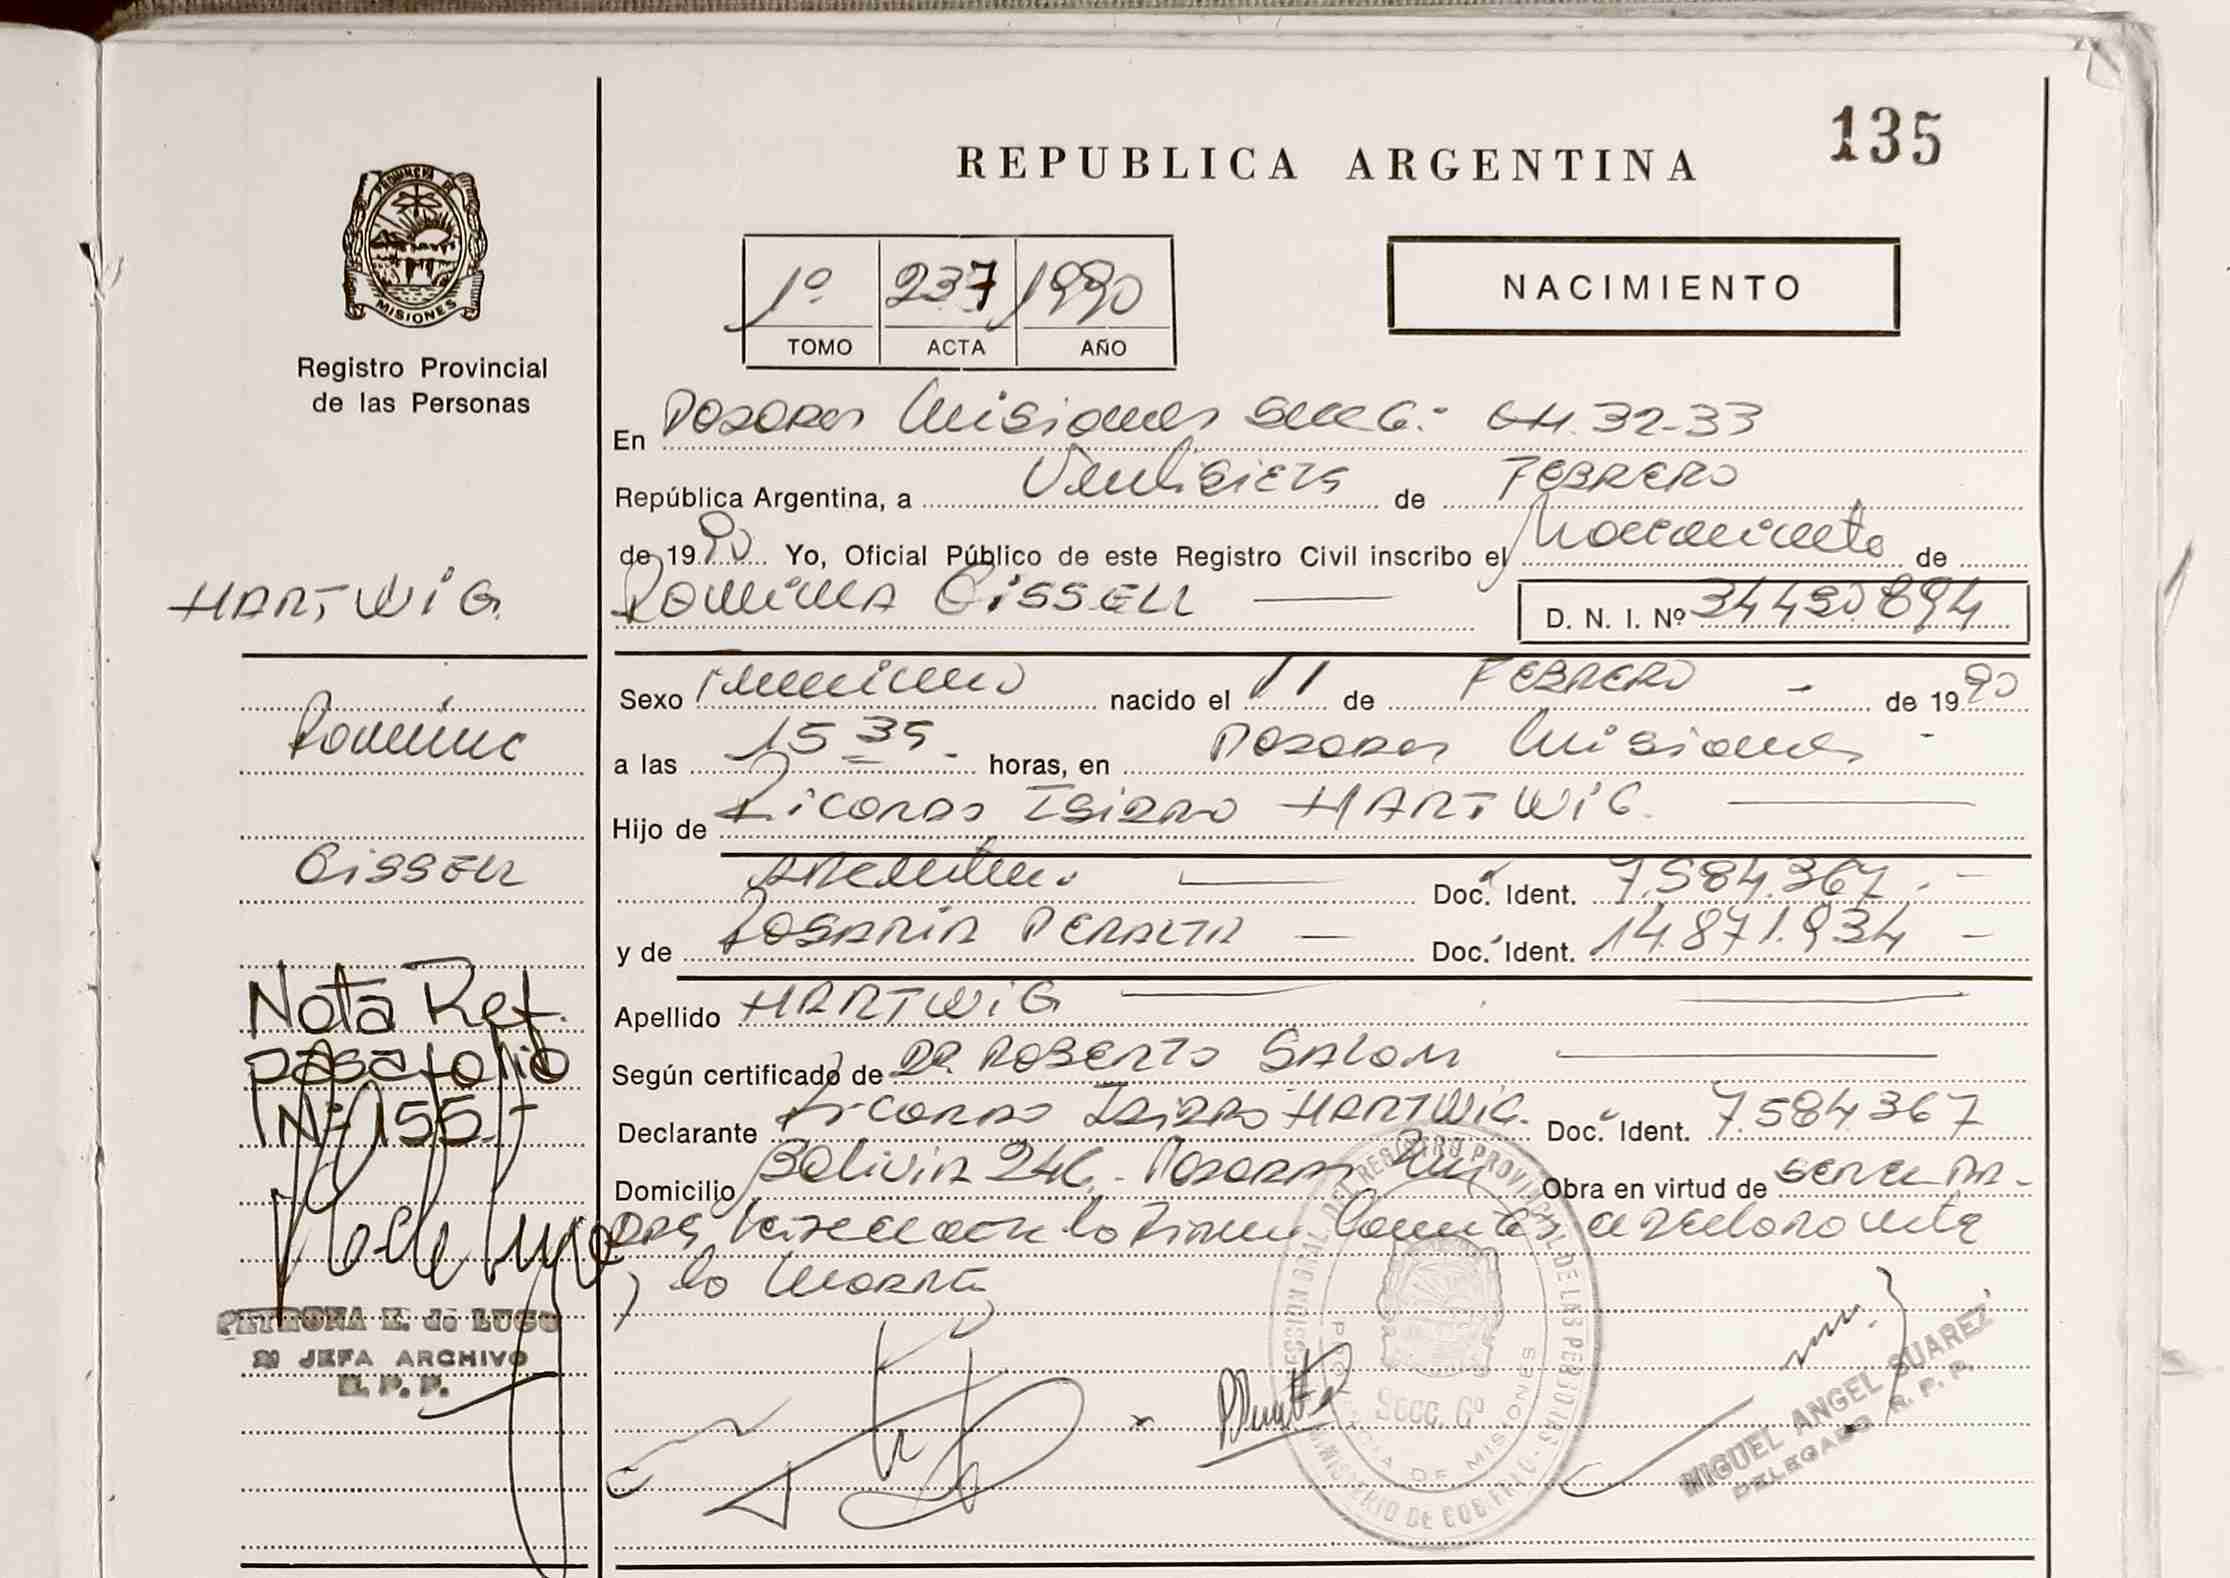 135
REPUBLICA ARGENTINA
PROVINCIA DE
MISIONES
Registro Provincial
de las Personas
1º 237 1990
TOMO ACTA AÑO
NACIMIENTO
En Posadas Misiones Secc 6:- CH. 32-33
República Argentina, a Veintiseis de FEBRERO
de 1990 Yo, Oficial Público de este Registro Civil inscribo el Nacimiento de
HARTWIG
ROMINA GISSELL D. N. I. Nº 34.450.894
Sexo Femenino nacido el 11 de FEBRERO - de 1990
Romina
a las 15 35 - horas, en Posadas Misiones -
Hijo de Ricardo Isidro HARTWIG.
GISSELL
ARGentino. Doc. Ident. 7.584.367.-
y de ROSARIA PERALTA - Doc. Ident. 14.871.934 -
Nota Ref.
pasa folio
Nº 155.-
Apellido HARTWIG
Según certificado de DR. ROBERTO SALOM
Declarante Ricardo Isidro HARTWIG. Doc. Ident. 7.584.367
Domicilio Bolivia 246.- Posadas Mnes Obra en virtud de ser el PA-
DRE la firma el declarante
y la MADRE
PETRONA E. de LUGO
JEFA ARCHIVO
R. P. P.
DEL REGISTRO PROVINCIAL DE LAS PERSONAS
MINISTERIO DE GOBIERNO
PROVINCIA DE MISIONES
Secc. 6º
MIGUEL ANGEL SUAREZ
DELEGADO R. P. P.